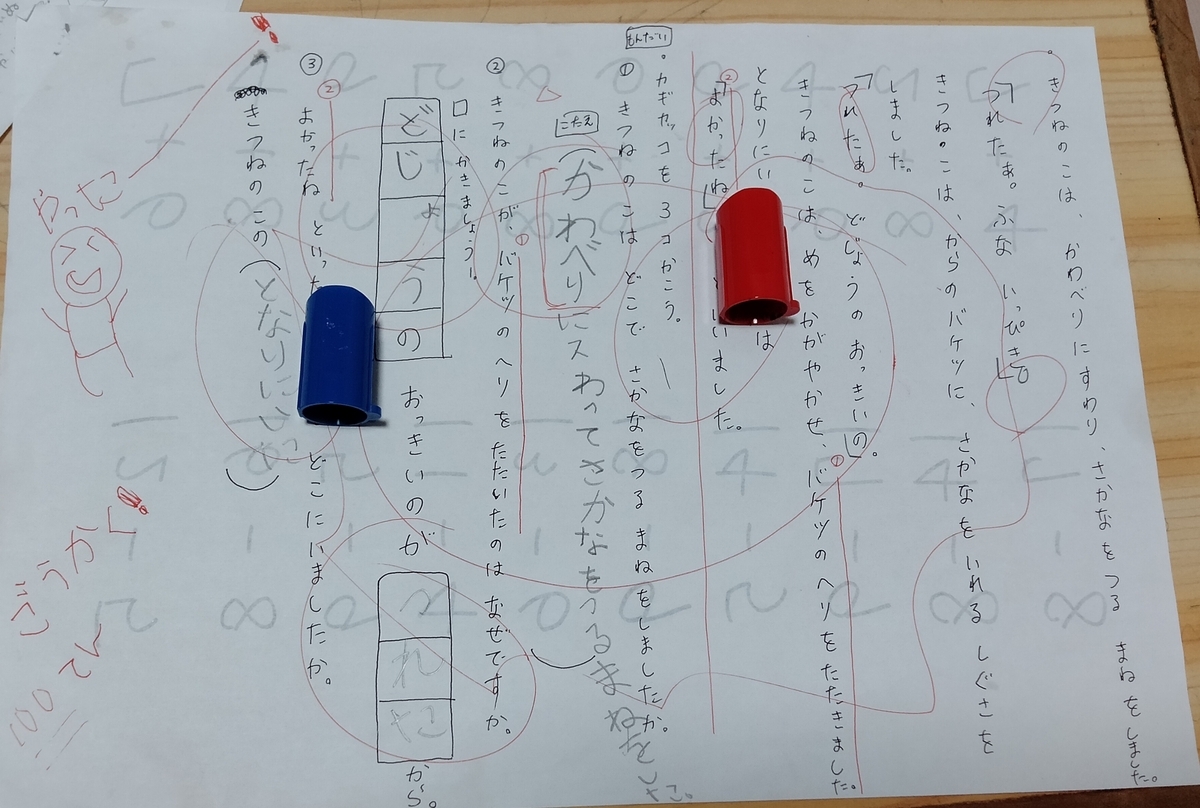 きつねのこは、かわべりにすわり、さかなをつる まねをしました。
「つれたぁ。ふな いっぴき」
きつねのこは、からのバケツに、さかなをいれる しぐさを
しました。
「つれたぁ。どじょうの おっきいの。」
きつねのこは、めをかがやかせ、バケツのへりをたたきました。
となりにい は
「よかったね いいました。
もんだい
。カギカッコを 3コかこう。
① きつねの こは どこで さかなをつる まねをしましたか。
こたえ
(かわべり)にスわってさかなをつるまねをした。
② きつねのこが、バケツ のへりをたたいたのは なぜですか。
□にかきましょう!
どじょうの おっきいのが つれた から。
③ よかったね といった どこにいましたか。
きつねの この (となりにい
やった
!
ごうかく!
100てん